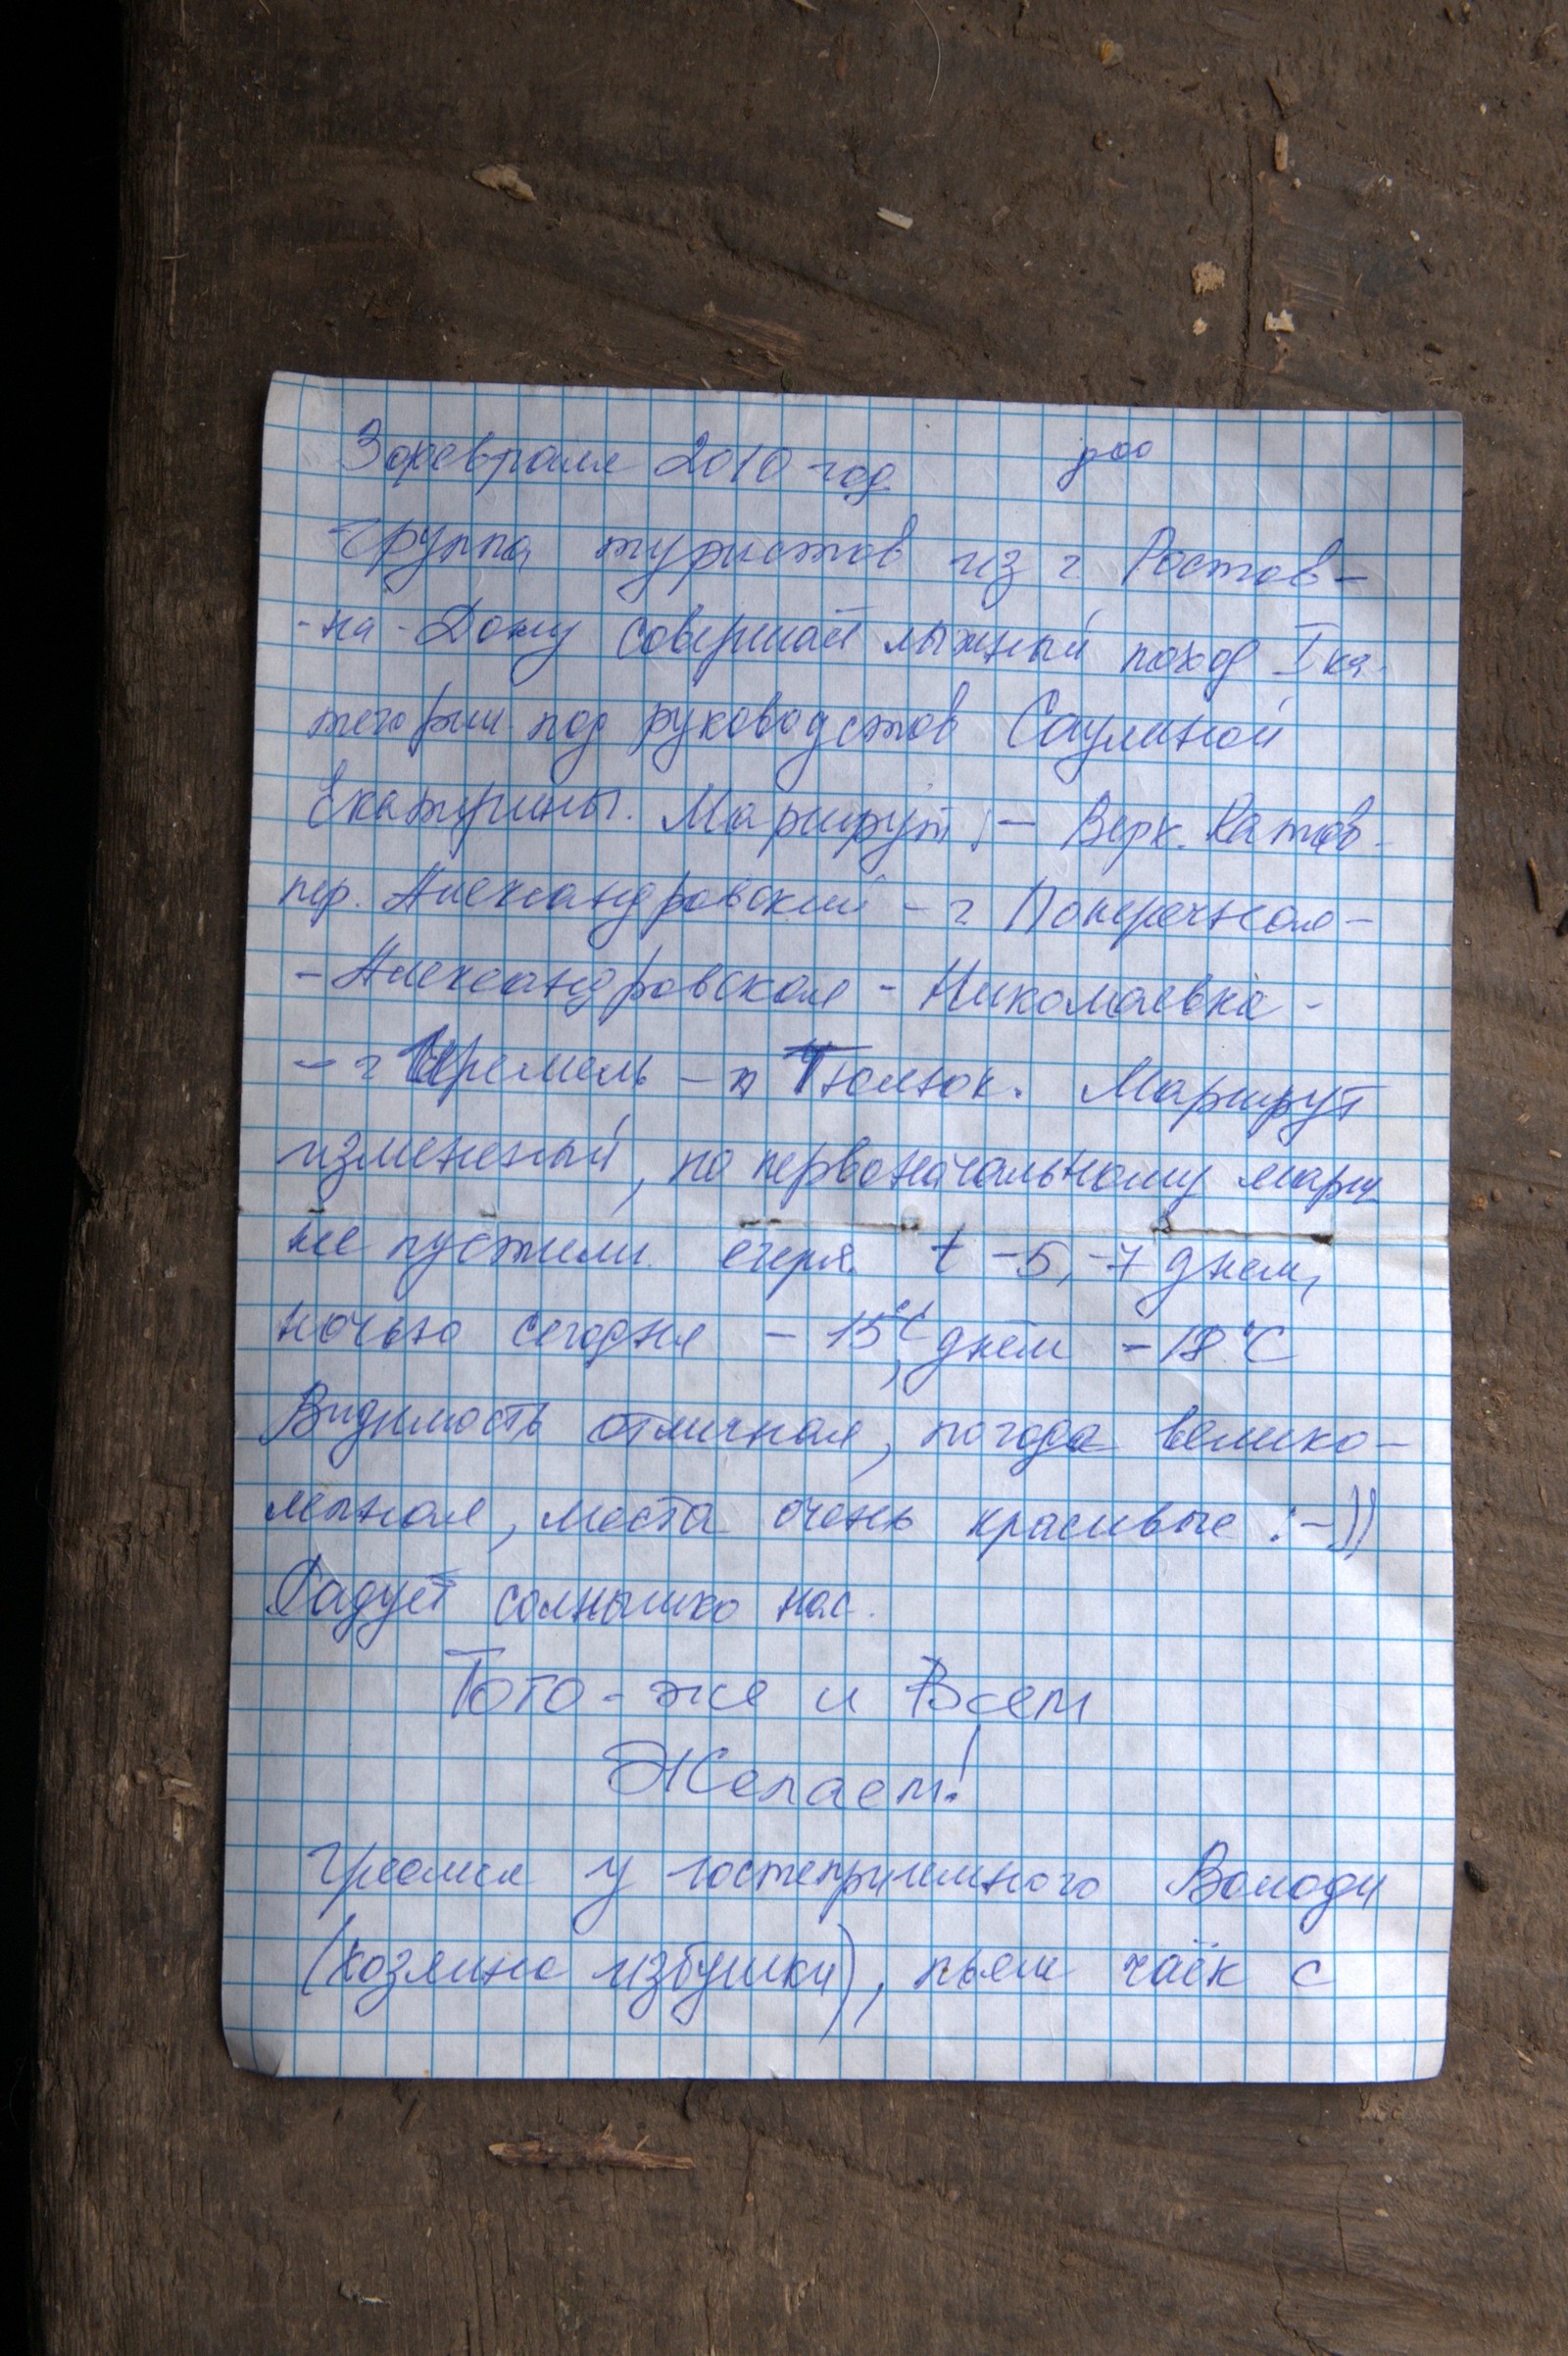 3 февраля 2010 год
Группа туристов из г. Ростов-
-на-Дону совершает лыжный поход I ка-
тегории под руководстов Саулиной
Екатерины. Маршрут :- Верх. Катав-
пер. Александровский - г Поперечная-
-Александровская - Николаевка -
- г Иремель - п Тюлюк. Маршрут
измененный, по первоначальному марш
не пустили егеря. t -5, -7 днем,
ночью сегодня - 15°C, днём - 18°C
Видимость отличная, погода велико-
лепная, места очень красивые :-))
Радует солнышко нас.
Того-же и Всем
Желаем!
Греемся у гостеприимного Володи
(хозяина избушки), пьем чаёк с